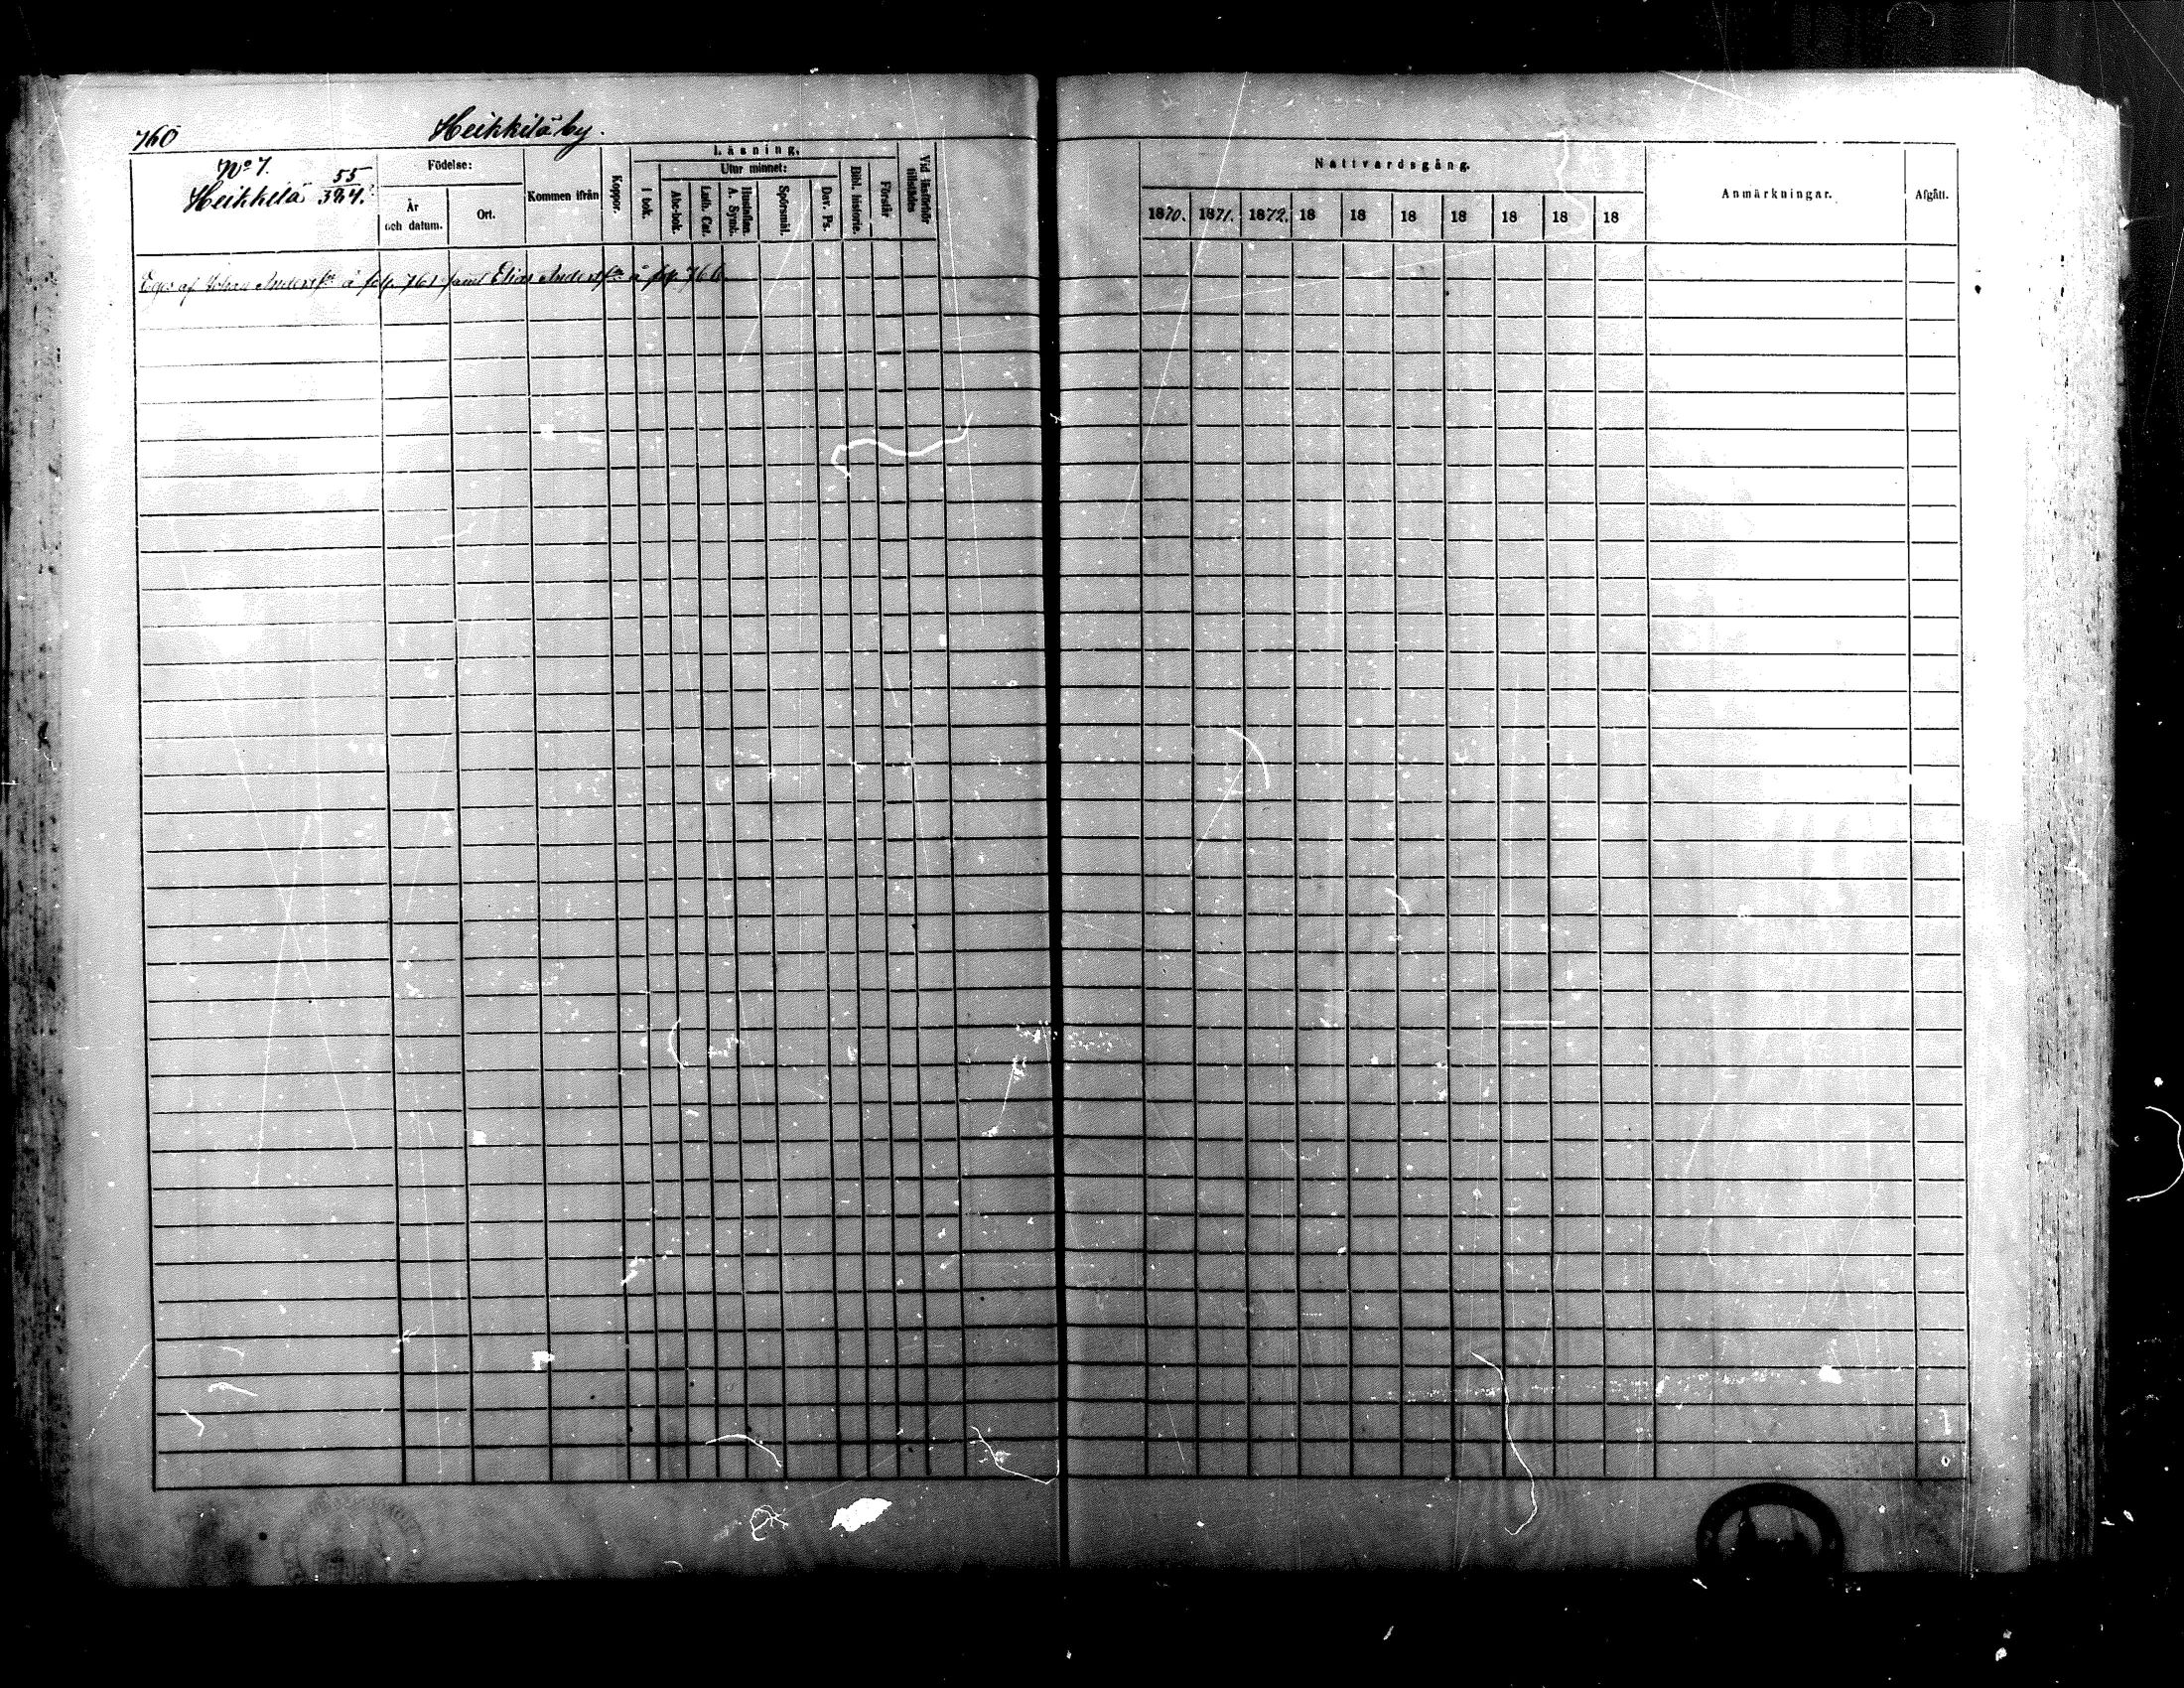 760
Heikkilä by.
No 7.
Heikkilä 55/384.
Födelse:
År och datum.
Ort.
Kommen ifrån
Koppor.
Läsning.
I bok.
Utur minnet:
Abc-bok.
Luth. Cat.
Hustaflan. A. Symb.
Spörsmål.
Dav. Ps.
Bibl. historie.
Förstår
Vid läsförhör tillstädes
Nattvardsgång.
1870. 1871. 1872. 18 18 18 18 18 18 18
Anmärkningar.
Afgått.
Eges af Johan Andersſn å fol. 761 samt Elias Andersſn å fol. 766